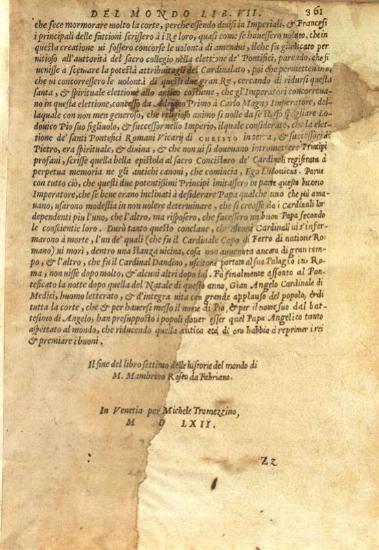 DEL MONDO LIB. VII. 361
che fece mormorare molto la corte, perche essendo diuisi in Imperiali, & Francesi
i principali delle fattioni scrissero à i Re loro, quasi come se hauessero uoluto, che in
questa creatione ui fossero concorse le uolontà di amendui, ilche fu giudicato per
nitioso all'autorità del sacro collegio nella elettione de' Pontefici, parendo, che si
uenisse à scemare la potestà attribuita gli del Cardinalato, poi che permetteuano,
che ui concorressero le uolontà di questi due gran Re, cercando di ridursi questa
santa, & spirituale elettione allo antico costume, che gl'Imperatori concorreua-
no in questa elettione, Adriano Primo à Carlo Magno Imperatore, del-
laquale con non men generoso, che religioso animo si uolle da se stesso spogliare Lo-
douico Pio suo figliuolo, & successor nello Imperio, ilquale considerato, che la elet-
tione de' santi Pontefici Romani Vicarij di CHRISTO in terra, & successori di
Pietro, era spirituale, & diuina, & che non ui si doueuano intromettere Prencipi
profani, scrisse quella bella epistola al sacro Concistoro de' Cardinali registrata à
perpetua memoria ne gli antichi canoni, che comincia, Ego Ludouicus. Parue
con tutto ciò, che questi due potentissimi Principi imitassero in parte questo buono
Imperatore, che se bene erano inclinati à desiderare Papa qualche uno che più ama-
uano, usarono modestia in non uolere determinare, che si creasse da i Cardinali lor
dependenti piu l'uno, che l'altro, ma risposero, che facessero un buon Papa secondo
le conscientie loro. Durò tanto questo conclaue, che alcuni Cardinali ui s'infer-
marono à morte, l'un de' quali (che fu il Cardinale Capo di Ferro di natione Ro-
mano) ui morì, dentro una stanza uicina, cosa non auuenuta ancora di gran tem-
po, & l'altro, che fu il Cardinal Dandino, uscitone portato al suo Palagio in Ro-
ma, non uisse dopo molto, & alcuni altri dopo lui. Fù finalmente assonto al Pon-
teficato la notte dopo quella del Natale di questo anno, Gian Angelo Cardinale di
Medici, huomo letterato, & d'integra uita con grande applauso del popolo, & di
tutta la corte, che & per hauersi messo il nome di Pio, & per il nome suo dal bat-
tesimo di Angelo, han presupposto i popoli douer esser quel Papa Angelico tanto
aspettato al mondo, che riducendo quella antica età di oro habbia à reprimer i rei
& premiare i buoni.
Il fine del libro settimo delle historie del mondo di
M. Mambrino Roseo da Fabriano.
In Venetia per Michele Tramezzino,
M D LXII.
Zz